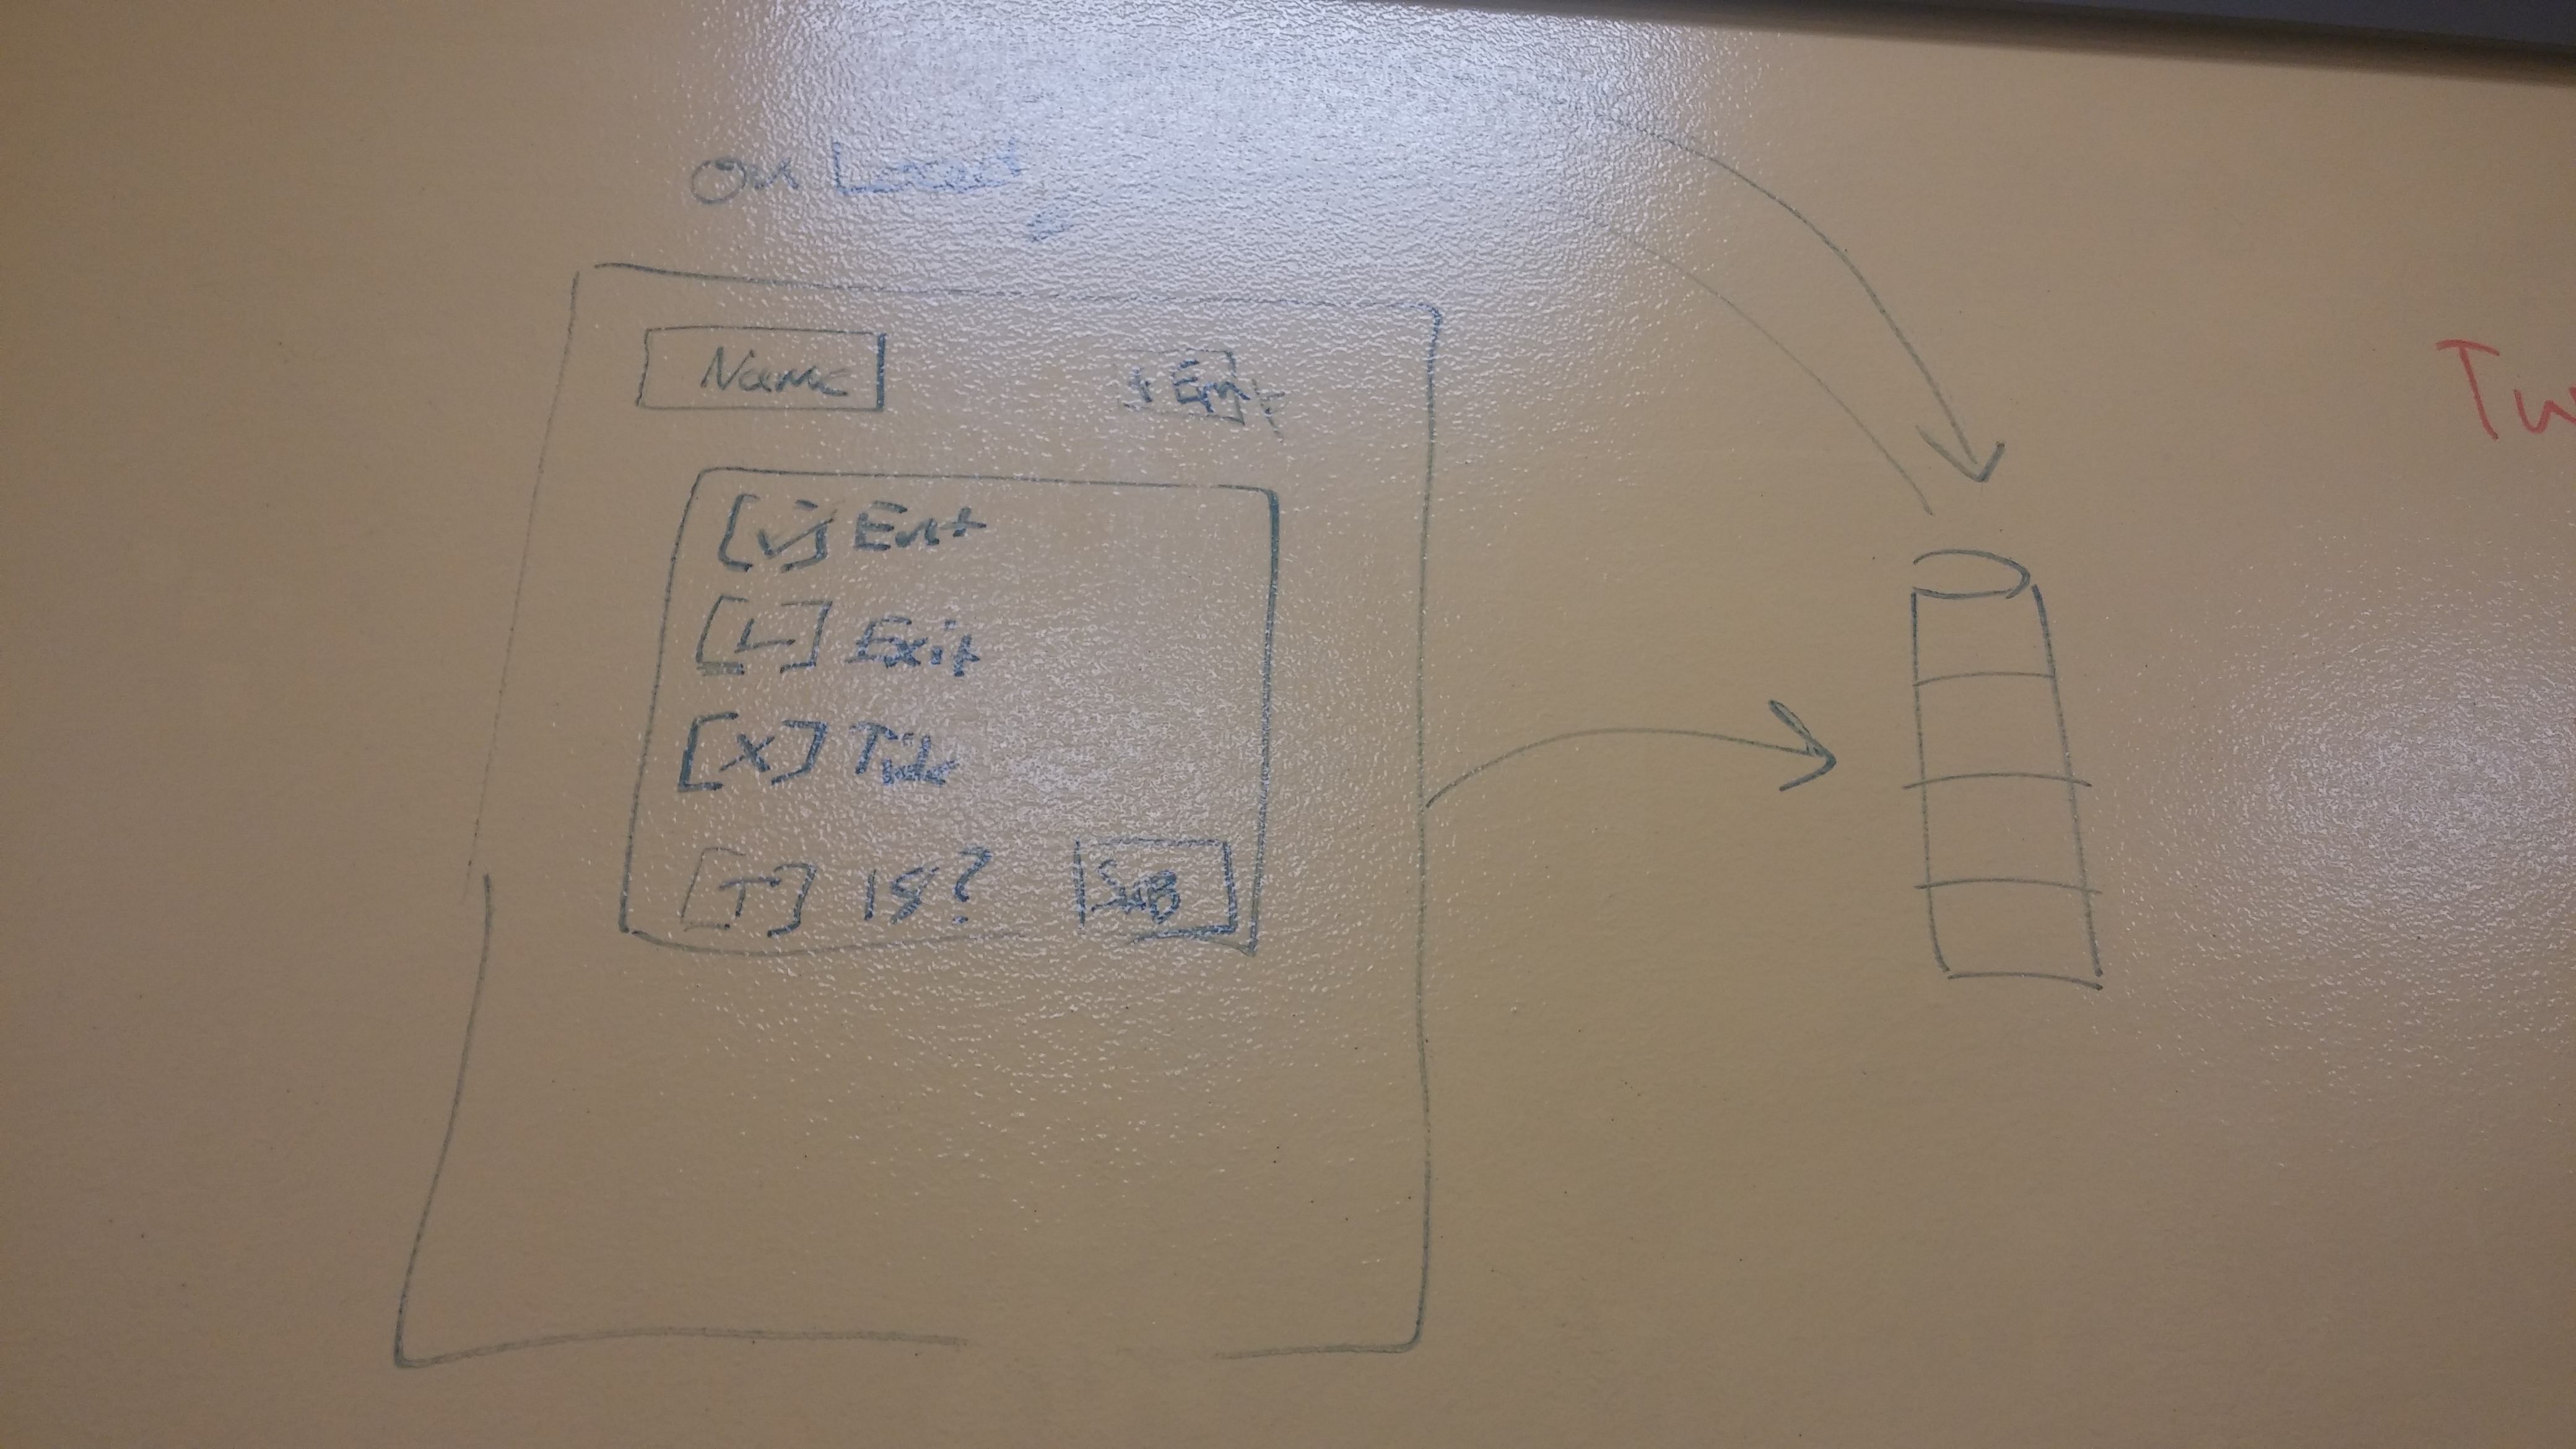 On Load
Name
[✓] Ent
[-] Exit
[X] Title
[T] is?
Sub
Tw